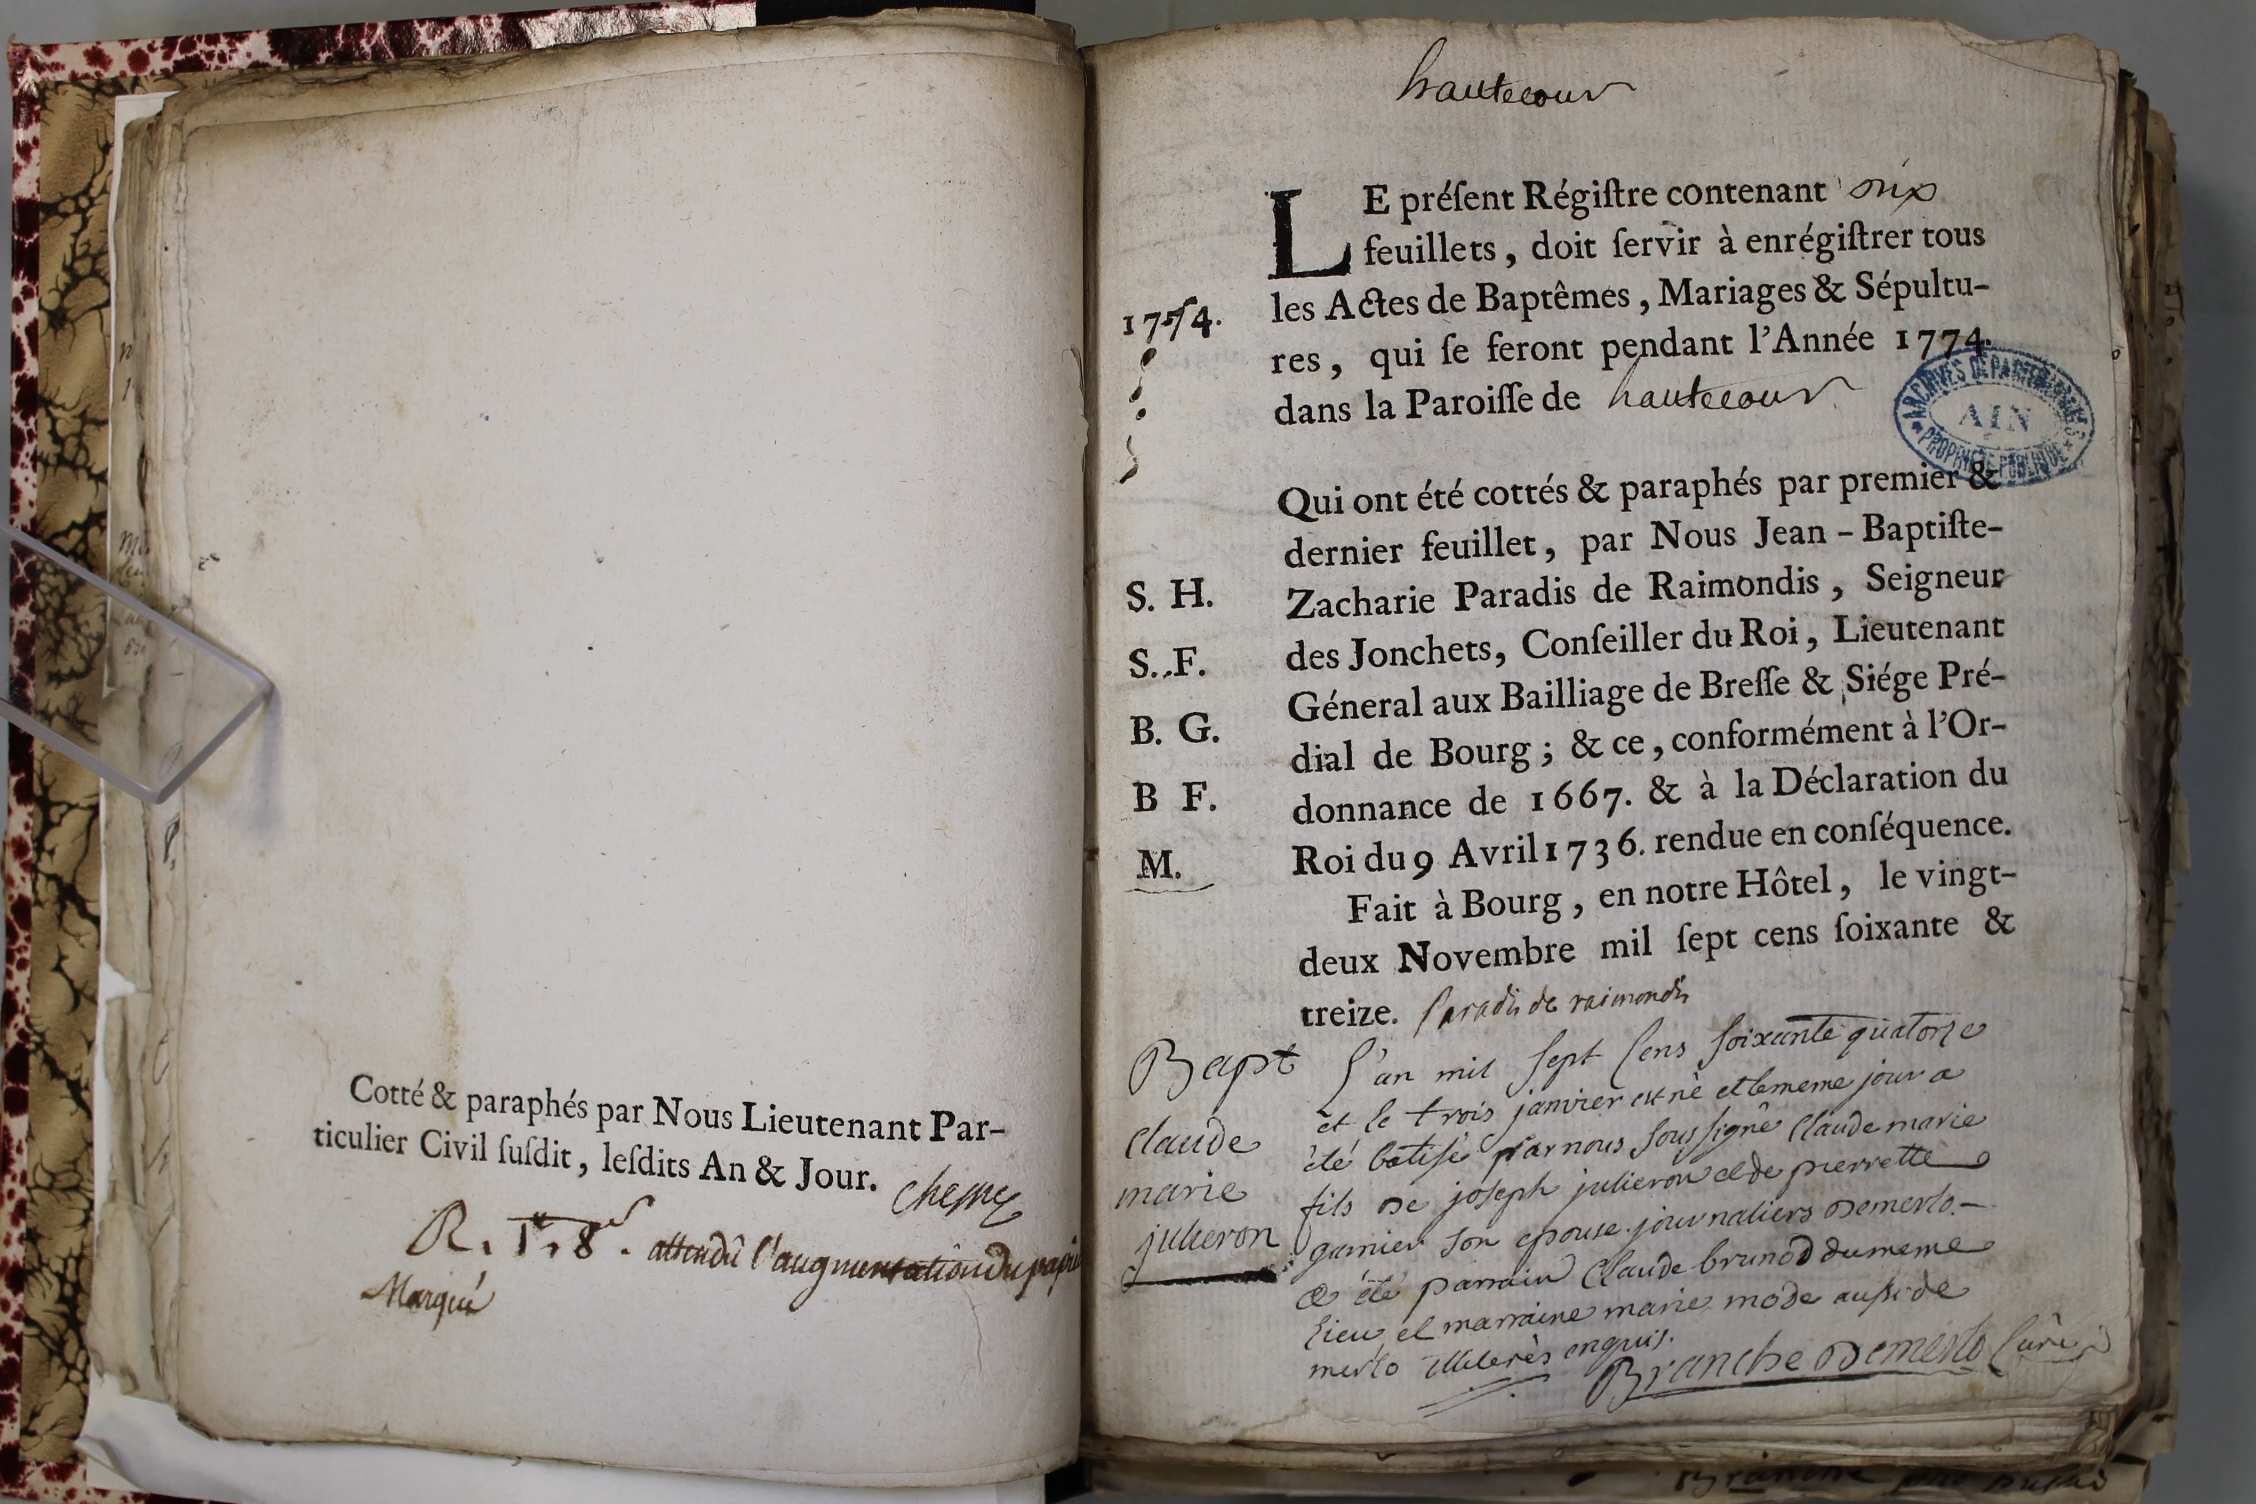 Cotté & paraphés par Nous Lieutenant Par-
ticulier Civil ſuſdit, leſdits An & Jour.
R. 1ᵗ. 8ˢ. attendû l'augmentation du papier
Marqué
hautecour
LE préſent Régiſtre contenant six
feuillets, doit ſervir à enrégiſtrer tous
les Actes de Baptêmes, Mariages & Sépultu-
res, qui ſe feront pendant l'Année 1774.
dans la Paroiſſe de hautecour
1774.
ARCHIVES DÉPARTEMENTALES
AIN
PROPRIÉTÉ PUBLIQUE
Qui ont été cottés & paraphés par premier &
dernier feuillet, par Nous Jean-Baptiſte-
Zacharie Paradis de Raimondis, Seigneur
des Jonchets, Conſeiller du Roi, Lieutenant
Géneral aux Bailliage de Breſſe & Siége Pré-
dial de Bourg; & ce, conformément à l'Or-
donnance de 1667. & à la Déclaration du
Roi du 9 Avril 1736. rendue en conſéquence.
Fait à Bourg, en notre Hôtel, le vingt-
deux Novembre mil ſept cens ſoixante &
treize. Paradis de raimondis
S. H.
S. F.
B. G.
B F.
M.
Bapt
claude
marie
julieron
L'an mil sept cens soixante quatorze
et le trois janvier est né et le meme jour a
été batisé par nous soussigné Claude marie
fils de joseph julieron et de pierrette
garnier son epouse journaliers de merlo.
a été parrain Claude brunod du meme
lieu et marraine marie mode aussi de
merlo illiterés enquis.
Branche de merlo Curé